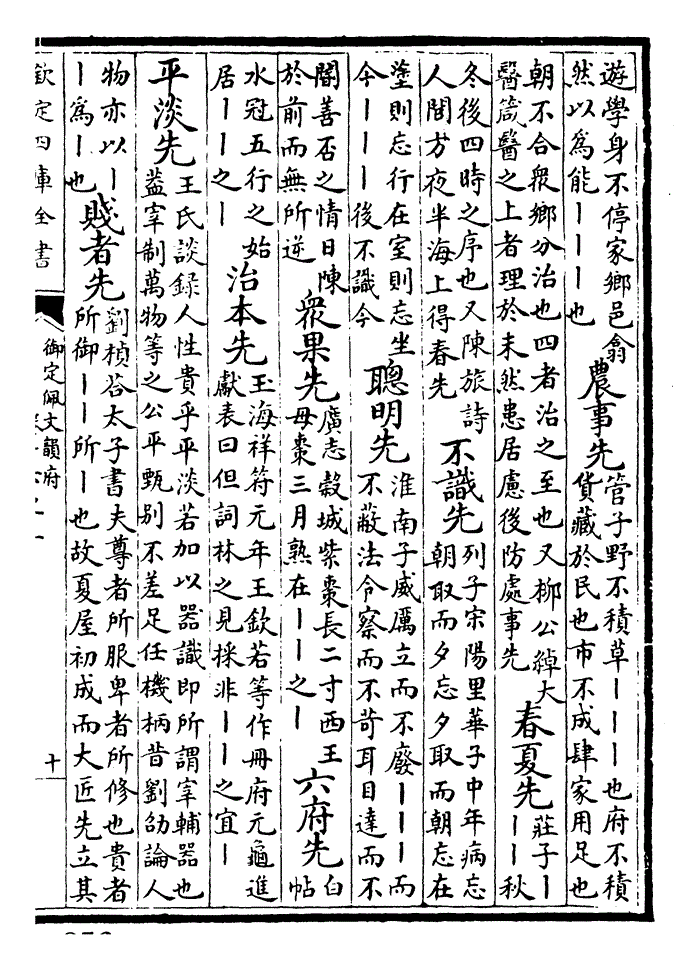 遊學身不停家鄉邑翕
然以為能丨丨丨也
農事先
管子野不積草丨丨丨也府不積
貨藏於民也市不成肆家用足也
朝不合衆鄉分治也四者治之至也又柳公綽大
醫箴醫之上者理於未然患居慮後防處事先
春夏先
莊子丨
丨丨秋
冬後四時之序也又陳旅詩
人間方夜半海上得春先
不識先
列子宋陽里華子中年病忘
朝取而夕忘夕取而朝忘在
塗則忘行在室則忘坐
今丨丨丨後不識今
聰明先
淮南子威厲立而不廢丨丨丨而
不蔽法令察而不苛耳目達而不
闇善否之情日陳
於前而無所逆
衆果先
廣志穀城紫棗長二寸西王
母棗三月熟在丨丨之丨
六府先
白
帖
水冠五行之始
居丨丨之丨
治本先
玉海祥符元年王欽若等作冊府元龜進
獻表曰但詞林之見採非丨丨之宜丨
平淡先
王氏談録人性貴乎平淡若加以器識即所謂宰輔器也
蓋宰制萬物等之公平甄别不差足任機柄昔劉劭論人
物亦以丨
丨為丨也
賤者先
劉楨荅太子書夫尊者所服卑者所修也貴者
所御丨丨所丨也故夏屋初成而大匠先立其
欽定四庫全書
御定佩文韻府
十